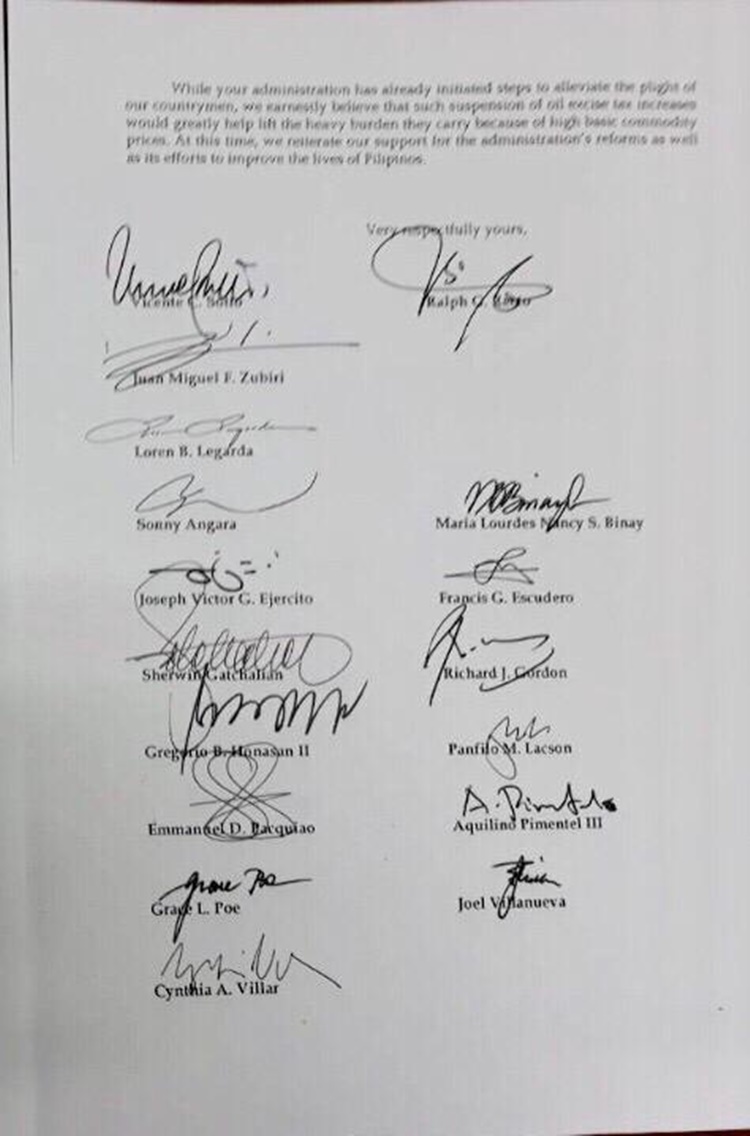 While your administration has already initiated steps to alleviate the plight of
our countrymen, we earnestly believe that such suspension of oil excise tax increases
would greatly help lift the heavy burden they carry because of high basic commodity
prices. At this time, we reiterate our support for the administration's reforms as well
as its efforts to improve the lives of Pilipinos.
Very respectfully yours,
Vicente C. Sotto
Ralph G. Recto
Juan Miguel F. Zubiri
Loren B. Legarda
Sonny Angara
Maria Lourdes Nancy S. Binay
Joseph Victor G. Ejercito
Francis G. Escudero
Sherwin Gatchalian
Richard J. Gordon
Gregorio B. Honasan II
Panfilo M. Lacson
Emmanuel D. Pacquiao
A. Pimentel
Aquilino Pimentel III
Grace Poe
Grace L. Poe
Joel Villanueva
Cynthia A. Villar